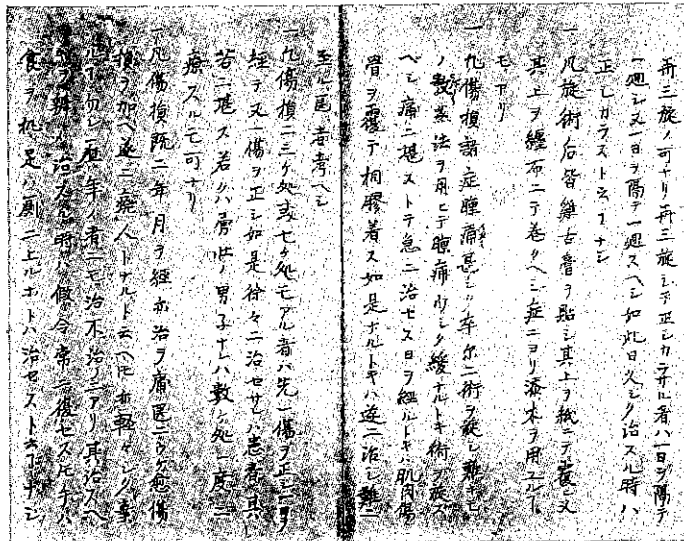 再三旋ノ可ナリ再三旋シテ正シカラサル者ハ一日ヲ隔テ
一廻シ又一日ヲ隔テ一廻スヘシ如此日久シク治スル時ハ
正シカラスト云フナシ
一凡旋術后皆雞古膏ヲ貼シ其上ヲ紙ニテ蓋ヒ又
其上ヲ纏布ニテ巻クヘシ症ニヨリ添木ヲ用ユル
モアリ
一凡傷損諸症腫痛甚シハ卒尓ニ術ヲ旋シ難シ
ノ数蒸法ヲ用ヒテ腫痛少シク緩ナルトキ術ヲ旋ス
ヘシ痛ニ堪ストテ急ニ治セス日ヲ経ルトキハ肌肉傷
骨ヲ覆テ桐膠着ス如是ナルトキハ遂ニ治シ難ニ
至ル医者考ヘシ
一凡傷損二三ケ処或七ケ処モアル者ハ先一傷ヲ正シ一日ヲ
経テ又一傷ヲ正シ如是徐々ニ治セサレハ患者其
苦ニ堪ス若ハ壮ノ男子ナレハ数ケ処一度ニ
療スルモ可ナリ
一凡傷損既ニ年月ヲ経亦治ヲ庸医ニウケ愈傷
損ヲ加ヘ遂ニ廃人トナルト云ヘ𪜈亦軽々シク棄
ル勿レ一年ノ者ニモ治不治アリ其治スヘ
ヲ辨ル治スル時ハ假令常ニ復セス𪜈手ハ
食ヲ机足ハ厠ニ上ルホトハ治セスト云フナシ